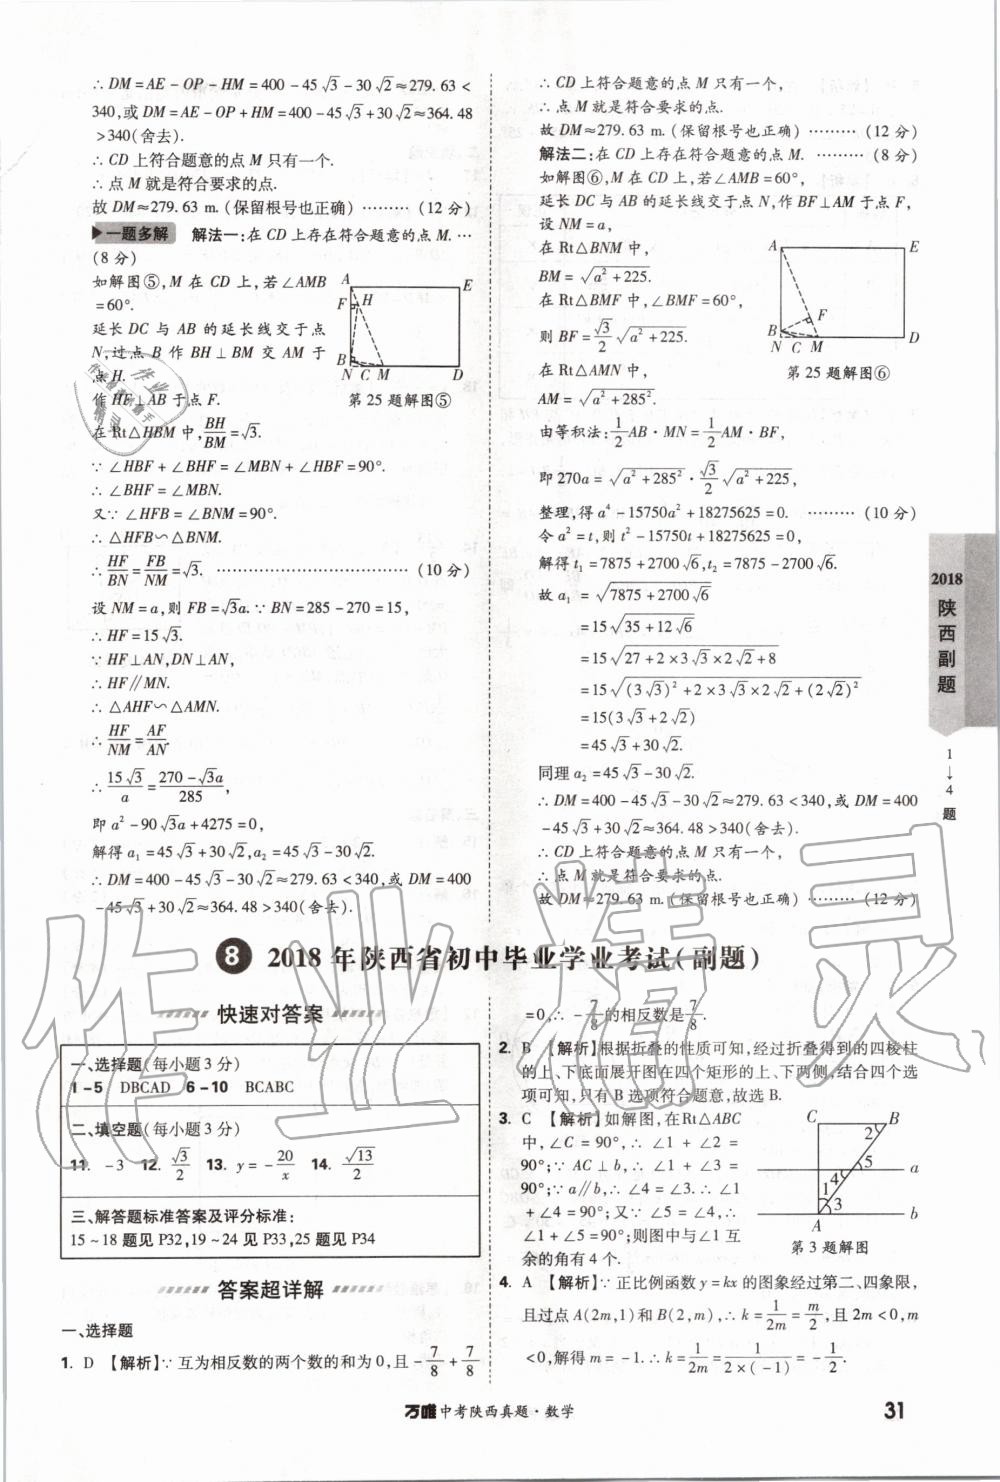 ∴ DM = AE - OP - HM = 400 - 45√3 - 30√2 ≈ 279.63 <
340,或 DM = AE - OP + HM = 400 - 45√3 + 30√2 ≈ 364.48
>340(舍去).
∴ CD 上符合题意的点 M 只有一个.
∴ 点 M 就是符合要求的点.
故 DM≈279.63 m.(保留根号也正确) ……… (12 分)
一题多解 解法一:在 CD 上存在符合题意的点 M. …
(8 分)
如解图⑤,M 在 CD 上,若∠AMB
=60°.
延长 DC 与 AB 的延长线交于点
N,过点 B 作 BH⊥BM 交 AM 于
点 H.
作 HF⊥AB 于点 F.
A E F H B N C M D
第 25 题解图⑤
在 Rt△HBM 中,BH/BM = √3.
∵ ∠HBF + ∠BHF = ∠MBN + ∠HBF = 90°.
∴ ∠BHF = ∠MBN.
又∵ ∠HFB = ∠BNM = 90°.
∴ △HFB∽△BNM.
∴ HF/BN = FB/NM = √3. …………………………… (10 分)
设 NM = a,则 FB = √3a. ∵ BN = 285 - 270 = 15,
∴ HF = 15√3.
∵ HF⊥AN,DN⊥AN,
∴ HF∥MN.
∴ △AHF∽△AMN.
∴ HF/NM = AF/AN.
∴ 15√3/a = (270 - √3a)/285,
即 a² - 90√3a + 4275 = 0,
解得 a₁ = 45√3 + 30√2, a₂ = 45√3 - 30√2.
∴ DM = 400 - 45√3 - 30√2 ≈ 279.63 < 340,或 DM = 400
- 45√3 + 30√2 ≈ 364.48 > 340(舍去).
∴ CD 上符合题意的点 M 只有一个,
∴ 点 M 就是符合要求的点.
故 DM≈279.63 m.(保留根号也正确) ……… (12 分)
解法二:在 CD 上存在符合题意的点 M. ……… (8 分)
如解图⑥,M 在 CD 上,若∠AMB = 60°,
延长 DC 与 AB 的延长线交于点 N,作 BF⊥AM 于点 F,
设 NM = a,
在 Rt△BNM 中,
BM = √(a² + 225).
在 Rt△BMF 中,∠BMF = 60°,
则 BF = √3/2 √(a² + 225),
在 Rt△AMN 中,
AM = √(a² + 285²).
A E F B N C M D
第 25 题解图⑥
由等积法:1/2 AB·MN = 1/2 AM·BF,
即 270a = √(a² + 285²)·√3/2 √(a² + 225),
整理,得 a⁴ - 15750a² + 18275625 = 0. ……… (10 分)
令 a² = t,则 t² - 15750t + 18275625 = 0,
解得 t₁ = 7875 + 2700√6, t₂ = 7875 - 2700√6.
故 a₁ = √(7875 + 2700√6)
= 15√(35 + 12√6)
= 15√(27 + 2×3√3×2√2 + 8)
= 15√((3√3)² + 2×3√3×2√2 + (2√2)²)
= 15(3√3 + 2√2)
= 45√3 + 30√2.
同理 a₂ = 45√3 - 30√2.
∴ DM = 400 - 45√3 - 30√2 ≈ 279.63 < 340,或 DM = 400
- 45√3 + 30√2 ≈ 364.48 > 340(舍去).
∴ CD 上符合题意的点 M 只有一个,
∴ 点 M 就是符合要求的点.
故 DM≈279.63 m.(保留根号也正确) ……… (12 分)
2018 陕西副题
1→4 题
8 2018 年陕西省初中毕业学业考试(副题)
快速对答案
一、选择题(每小题 3 分)
1-5 DBCAD 6-10 BCABC
二、填空题(每小题 3 分)
11. -3 12. √3/2 13. y = -20/x 14. √13/2
三、解答题标准答案及评分标准:
15~18 题见 P32,19~24 见 P33,25 题见 P34
答案超详解
一、选择题
1. D 【解析】∵ 互为相反数的两个数的和为 0,且 -7/8 + 7/8
=0,∴ -7/8 的相反数是 7/8.
2. B 【解析】根据折叠的性质可知,经过折叠得到的四棱柱
的上、下底面展开图在四个矩形的上、下两侧,结合四个选
项可知,只有 B 选项符合题意,故选 B.
3. C 【解析】如解图,在Rt△ABC
中,∠C = 90°,∴ ∠1 + ∠2 =
90°;∵ AC⊥b,∴ ∠1 + ∠3 =
90°;∵ a∥b,∴ ∠4 = ∠3. ∴ ∠1
+ ∠4 = 90°;又∵ ∠5 = ∠4,∴
∠1 + ∠5 = 90°;则图中与∠1 互
余的角有 4 个.
C B 2 5 a 4 1 3 A b
第 3 题解图
4. A 【解析】∵ 正比例函数 y = kx 的图象经过第二、四象限,
且过点 A(2m,1)和 B(2,m),∴ k = 1/2m = m/2,且 2m < 0,m
<0,解得 m = -1. ∴ k = 1/2m = 1/(2×(-1)) = -1/2.
万唯中考陕西真题·数学
31
作业精灵